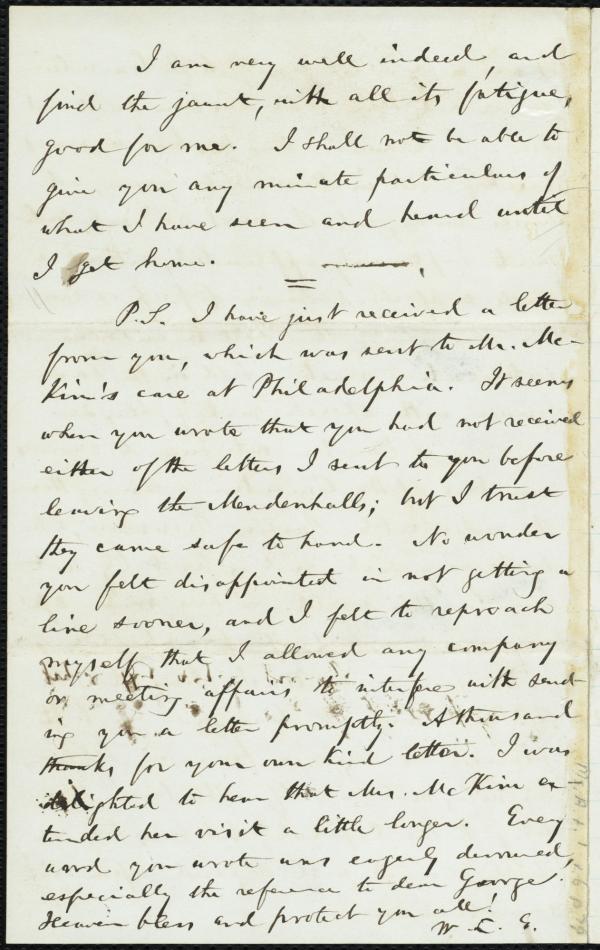 I am very well indeed, and
find the jaunt, with all its fatigue,
good for me. I shall not be able to
give you any minute particulars of
what I have seen and heard until
I get home.
P.S. I have just received a letter
from you, which was sent to Mr. Mc-
Kim's care at Philadelphia. It seems
when you wrote that you had not received
either of the letters I sent to you before
leaving the Mendenhalls; but I trust
they came safe to hand. No wonder
you felt disappointed in not getting a
line sooner, and I felt to reproach
myself that I allowed any company
or meeting affairs to interfere with send-
ing you a letter promptly. A thousand
thanks for your own kind letter. I was
delighted to hear that Mrs. McKim ex-
tended her visit a little longer. Every
word you wrote was eagerly devoured,
especially the reference to dear George.
Heaven bless and protect you all!
W. L. G.